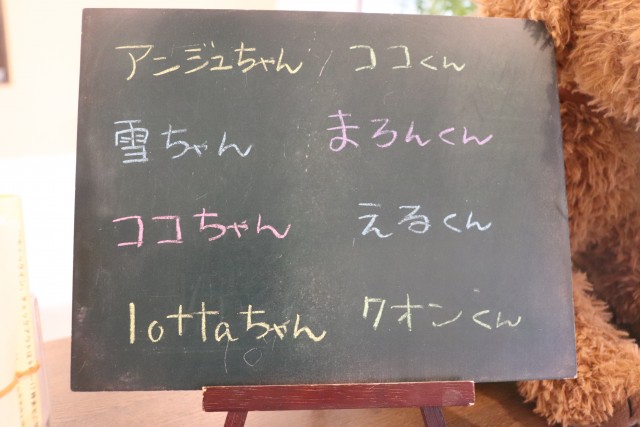 アンジュちゃん / ココくん
雪ちゃん まろんくん
ココちゃん えるくん
lottaちゃん クオンくん